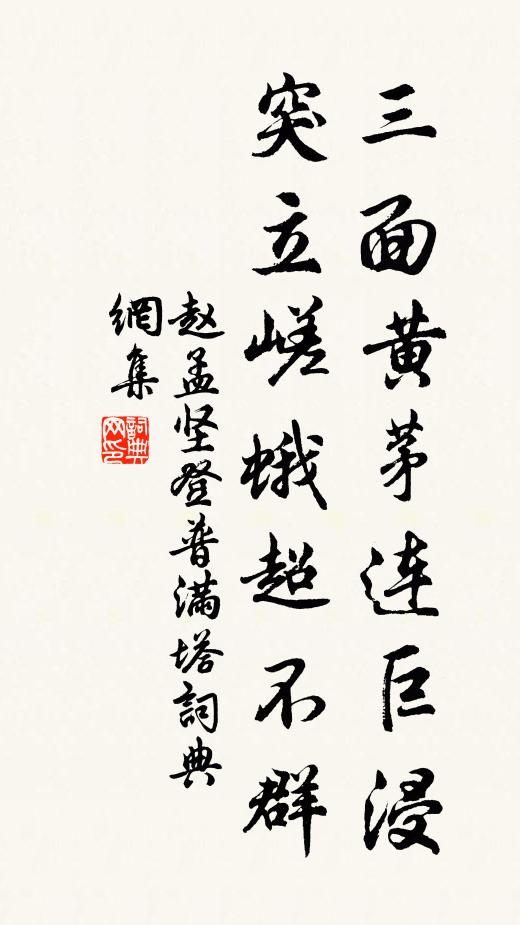 三面黄茅连巨浸
突立嵯蛾超不群
赵孟坚登普满塔詞典
網集
詞典网印